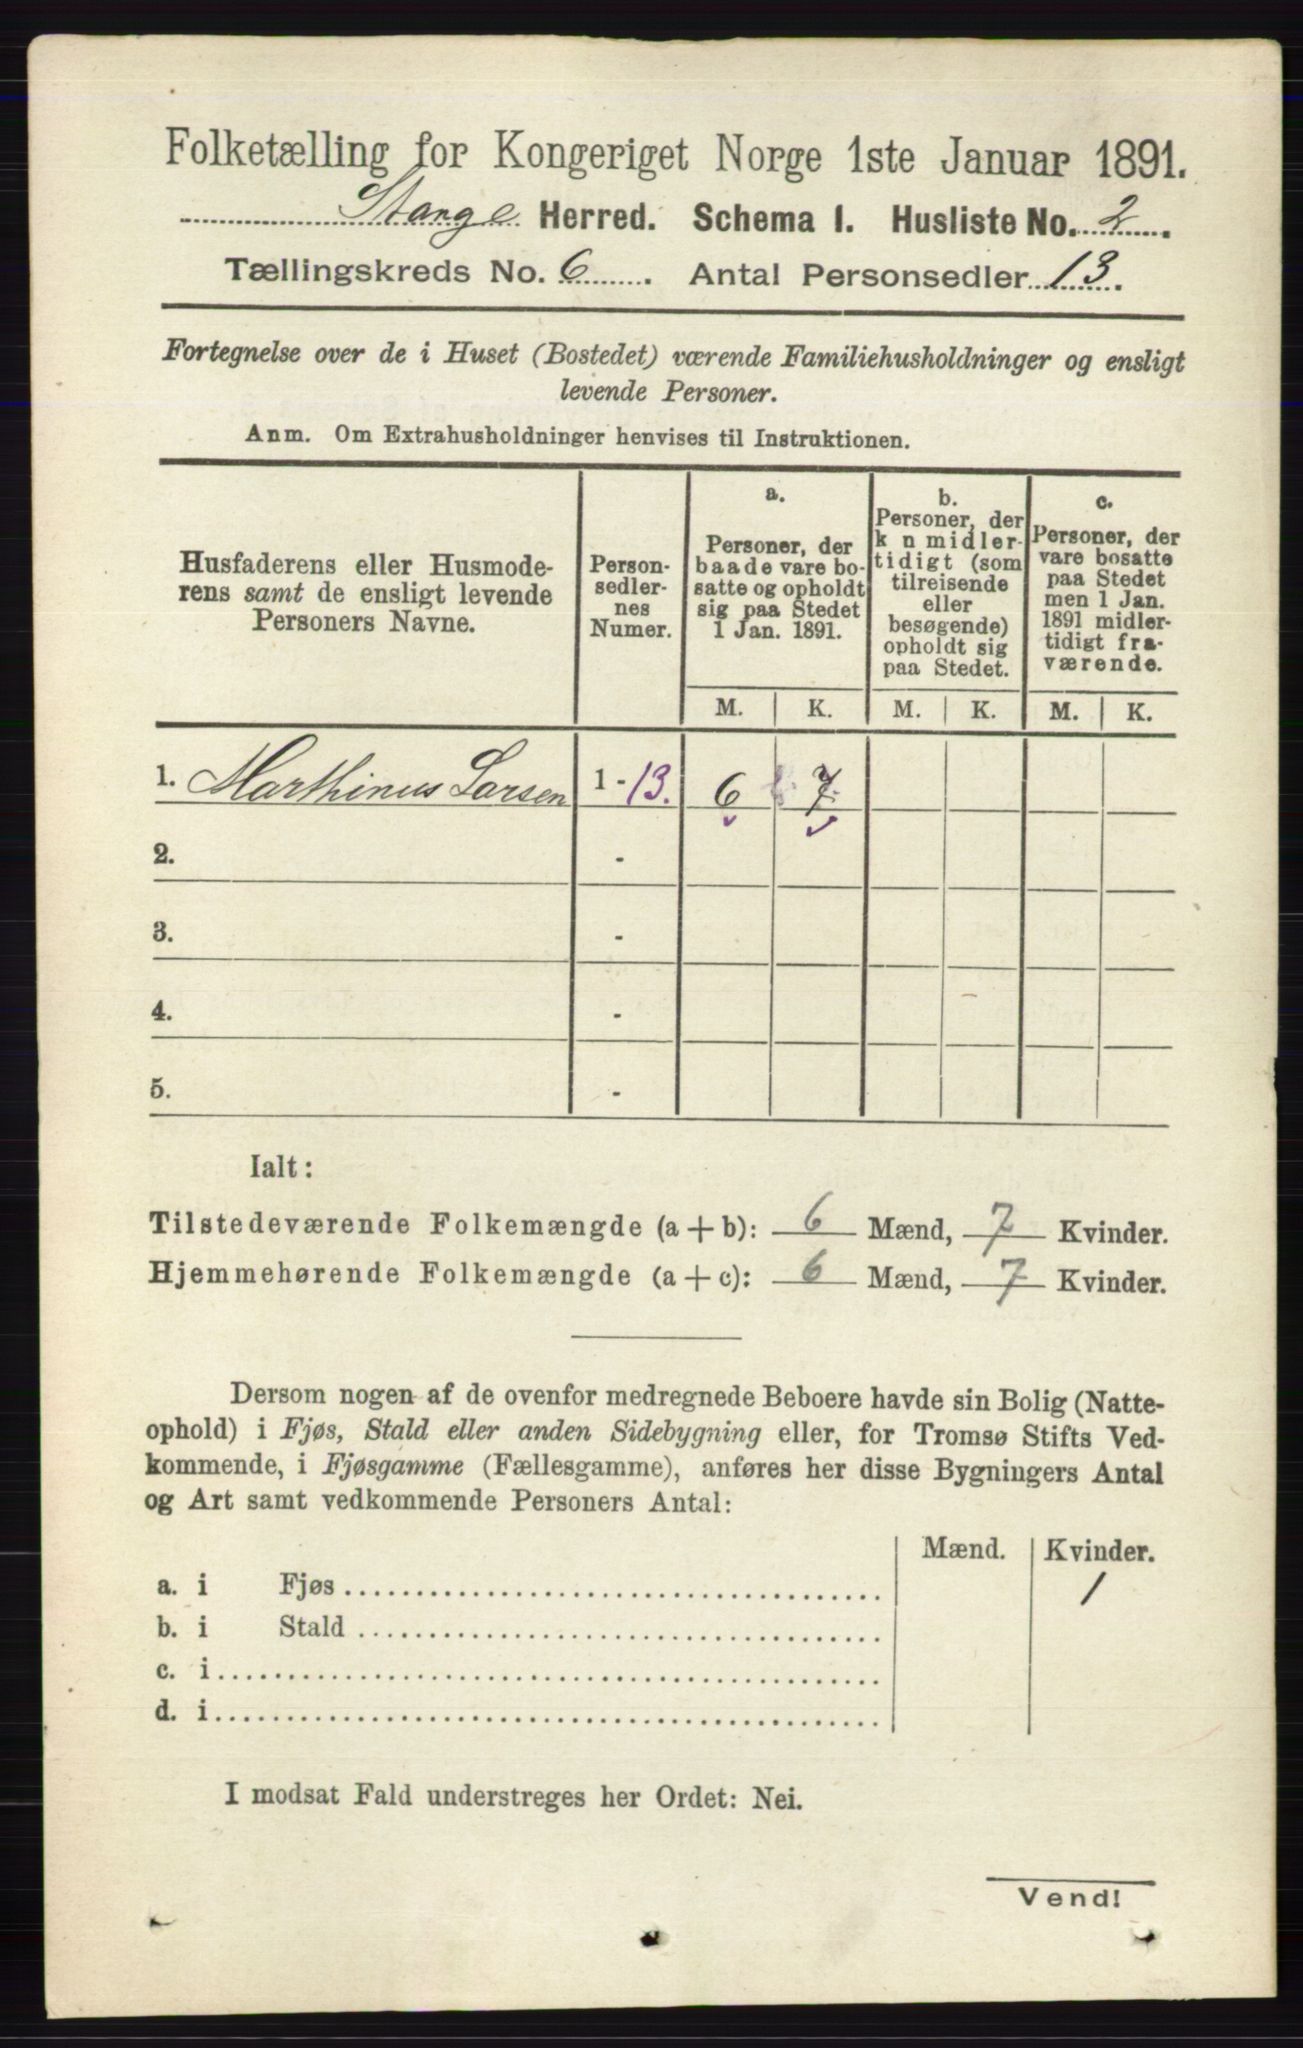 Folketælling for Kongeriget Norge 1ste Januar 1891.
Stange Herred. Schema I. Husliste No. 2.
Tællingskreds No. 6. Antal Personsedler 13.
Fortegnelse over de i Huset (Bostedet) værende Familiehusholdninger og ensligt
levende Personer.
Anm. Om Extrahusholdninger henvises til Instruktionen.
Husfaderens eller Husmode-
rens samt de ensligt levende
Personers Navne.
Person-
sedler-
nes
Numer.
a.
Personer, der
baade vare bo-
satte og opholdt
sig paa Stedet
1 Jan. 1891.
b.
Personer, der
k n midler-
tidigt (som
tilreisende
eller
besøgende)
opholdt sig
paa Stedet.
c.
Personer, der
vare bosatte
paa Stedet
men 1 Jan.
1891 midler-
tidigt fra-
værende.
M. K. M. K. M. K.
1. Marthinus Larsen 1 - 13. 6 7
2. -
3. -
4. -
5. -
Ialt:
Tilstedeværende Folkemængde (a + b): 6 Mænd, 7 Kvinder.
Hjemmehørende Folkemængde (a + c): 6 Mænd, 7 Kvinder.
Dersom nogen af de ovenfor medregnede Beboere havde sin Bolig (Natte-
ophold) i Fjøs, Stald eller anden Sidebygning eller, for Tromsø Stifts Ved-
kommende, i Fjøsgamme (Fællesgamme), anføres her disse Bygningers Antal
og Art samt vedkommende Personers Antal:
Mænd. Kvinder.
a. i Fjøs 1
b. i Stald
c. i
d. i
I modsat Fald understreges her Ordet: Nei.
Vend!